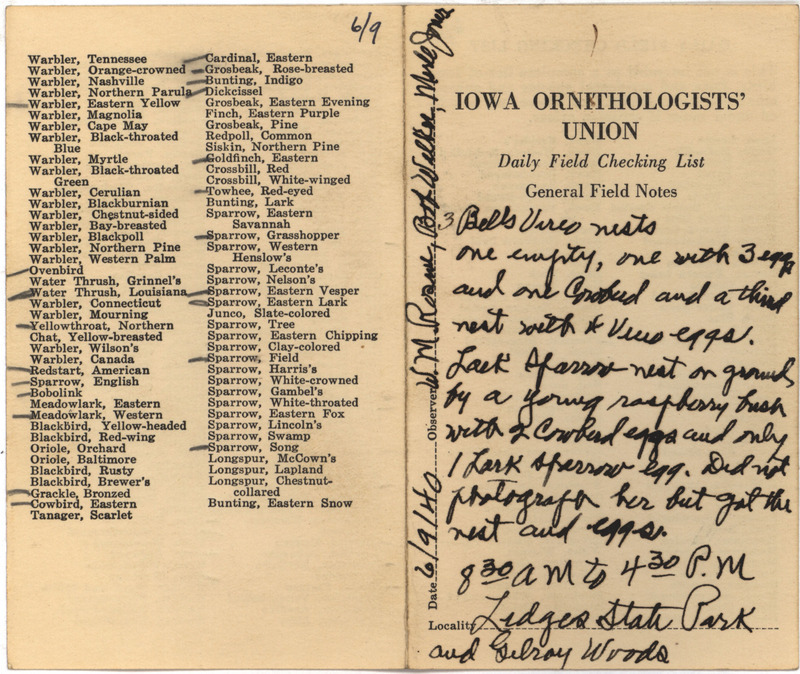 6/9
Warbler, Tennessee
Warbler, Orange-crowned
Warbler, Nashville
Warbler, Northern Parula
Warbler, Eastern Yellow
Warbler, Magnolia
Warbler, Cape May
Warbler, Black-throated
Blue
Warbler, Myrtle
Warbler, Black-throated
Green
Warbler, Cerulian
Warbler, Blackburnian
Warbler, Chestnut-sided
Warbler, Bay-breasted
Warbler, Blackpoll
Warbler, Northern Pine
Warbler, Western Palm
Ovenbird
Water Thrush, Grinnel's
Water Thrush, Louisiana
Warbler, Connecticut
Warbler, Mourning
Yellowthroat, Northern
Chat, Yellow-breasted
Warbler, Wilson's
Warbler, Canada
Redstart, American
Sparrow, English
Bobolink
Meadowlark, Eastern
Meadowlark, Western
Blackbird, Yellow-headed
Blackbird, Red-wing
Oriole, Orchard
Oriole, Baltimore
Blackbird, Rusty
Blackbird, Brewer's
Grackle, Bronzed
Cowbird, Eastern
Tanager, Scarlet
Cardinal, Eastern
Grosbeak, Rose-breasted
Bunting, Indigo
Dickcissel
Grosbeak, Eastern Evening
Finch, Eastern Purple
Grosbeak, Pine
Redpoll, Common
Siskin, Northern Pine
Goldfinch, Eastern
Crossbill, Red
Crossbill, White-winged
Towhee, Red-eyed
Bunting, Lark
Sparrow, Eastern
Savannah
Sparrow, Grasshopper
Sparrow, Western
Henslow's
Sparrow, Leconte's
Sparrow, Nelson's
Sparrow, Eastern Vesper
Sparrow, Eastern Lark
Junco, Slate-colored
Sparrow, Tree
Sparrow, Eastern Chipping
Sparrow, Clay-colored
Sparrow, Field
Sparrow, Harris's
Sparrow, White-crowned
Sparrow, Gambel's
Sparrow, White-throated
Sparrow, Eastern Fox
Sparrow, Lincoln's
Sparrow, Swamp
Sparrow, Song
Longspur, McCown's
Longspur, Lapland
Longspur, Chestnut-
collared
Bunting, Eastern Snow
Date 6/9/40 Observer W. M. Rosene, Bob Walker, Merle Jones
IOWA ORNITHOLOGISTS'
UNION
Daily Field Checking List
General Field Notes
3 Bells Vireo nests
one empty, one with 3 eggs
and one Cowbird and a third
nest with 4 Vireo eggs.
Lark Sparrow nest on ground
by a young raspberry bush
with 2 Cowbird eggs and only
1 Lark Sparrow egg. Did not
photograph her but got the
nest and eggs.
8 30 A M to 4 30 P.M
Locality Ledges State Park
and Gilroy Woods